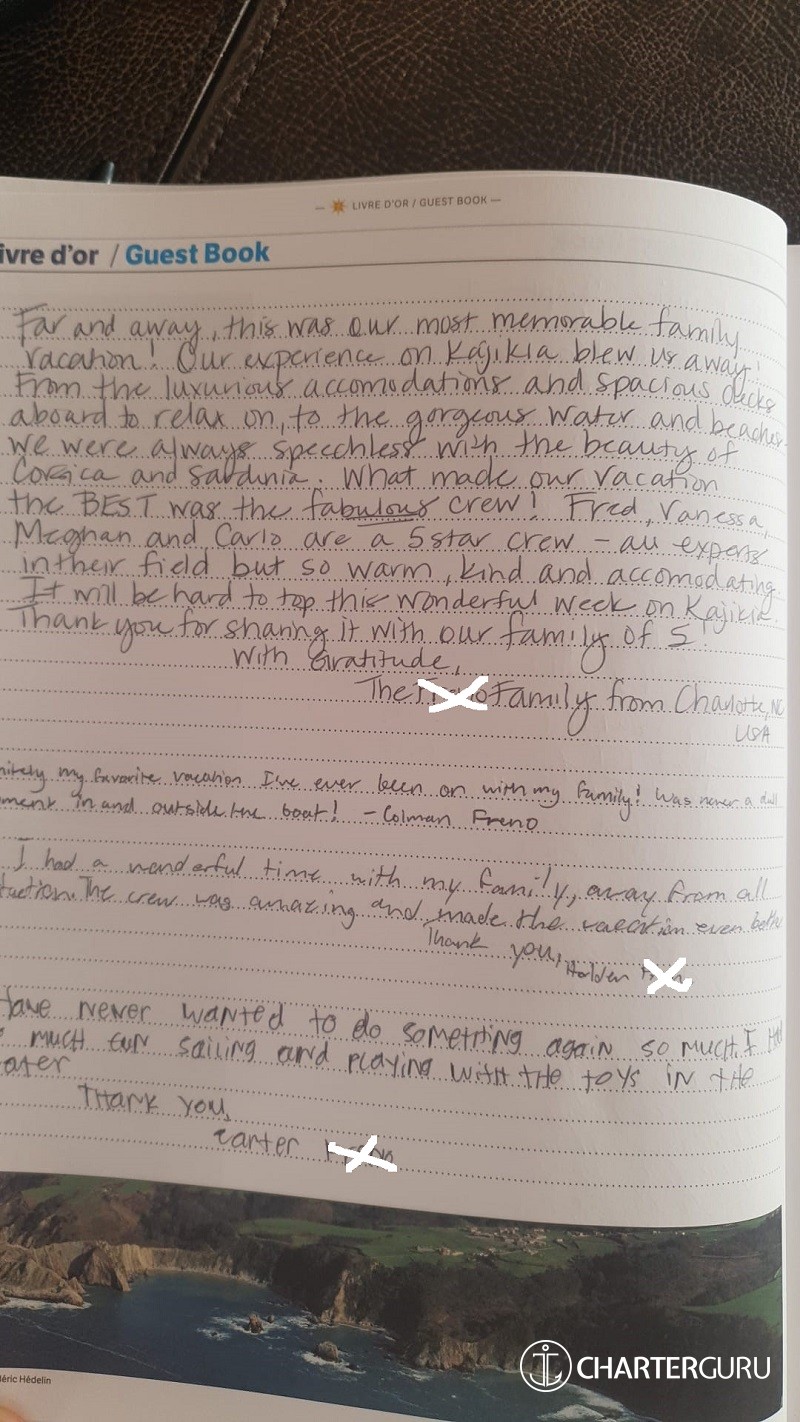 LIVRE D'OR / GUEST BOOK
ivre d'or / Guest Book
Far and away, this was our most memorable family
vacation! Our experience on Kajikia blew us away!
From the luxurious accomodations and spacious decks
aboard to relax on, to the gorgeous water and beaches
we were always speechless with the beauty of
Corsica and Sardinia. What made our vacation
the BEST was the fabulous crew! Fred, Vanessa,
Meghan and Carlo are a 5 star crew – all experts
in their field but so warm, kind and accomodating.
It will be hard to top this wonderful week on Kajikia.
Thank you for sharing it with our family of 5!
With Gratitude,
The Family from Charlotte, NC
USA
nitely my favorite vacation I've ever been on with my family! Was never a dull
ment in and outside the boat! – Colman Freno
I had a wonderful time with my family, away from all
The crew was amazing and made the vacation even better
Thank you,
Holden
Have never wanted to do something again so much. I had
much fun sailing and playing with the toys in the
ater
Thank you,
Carter
éric Hédelin
CHARTERGURU